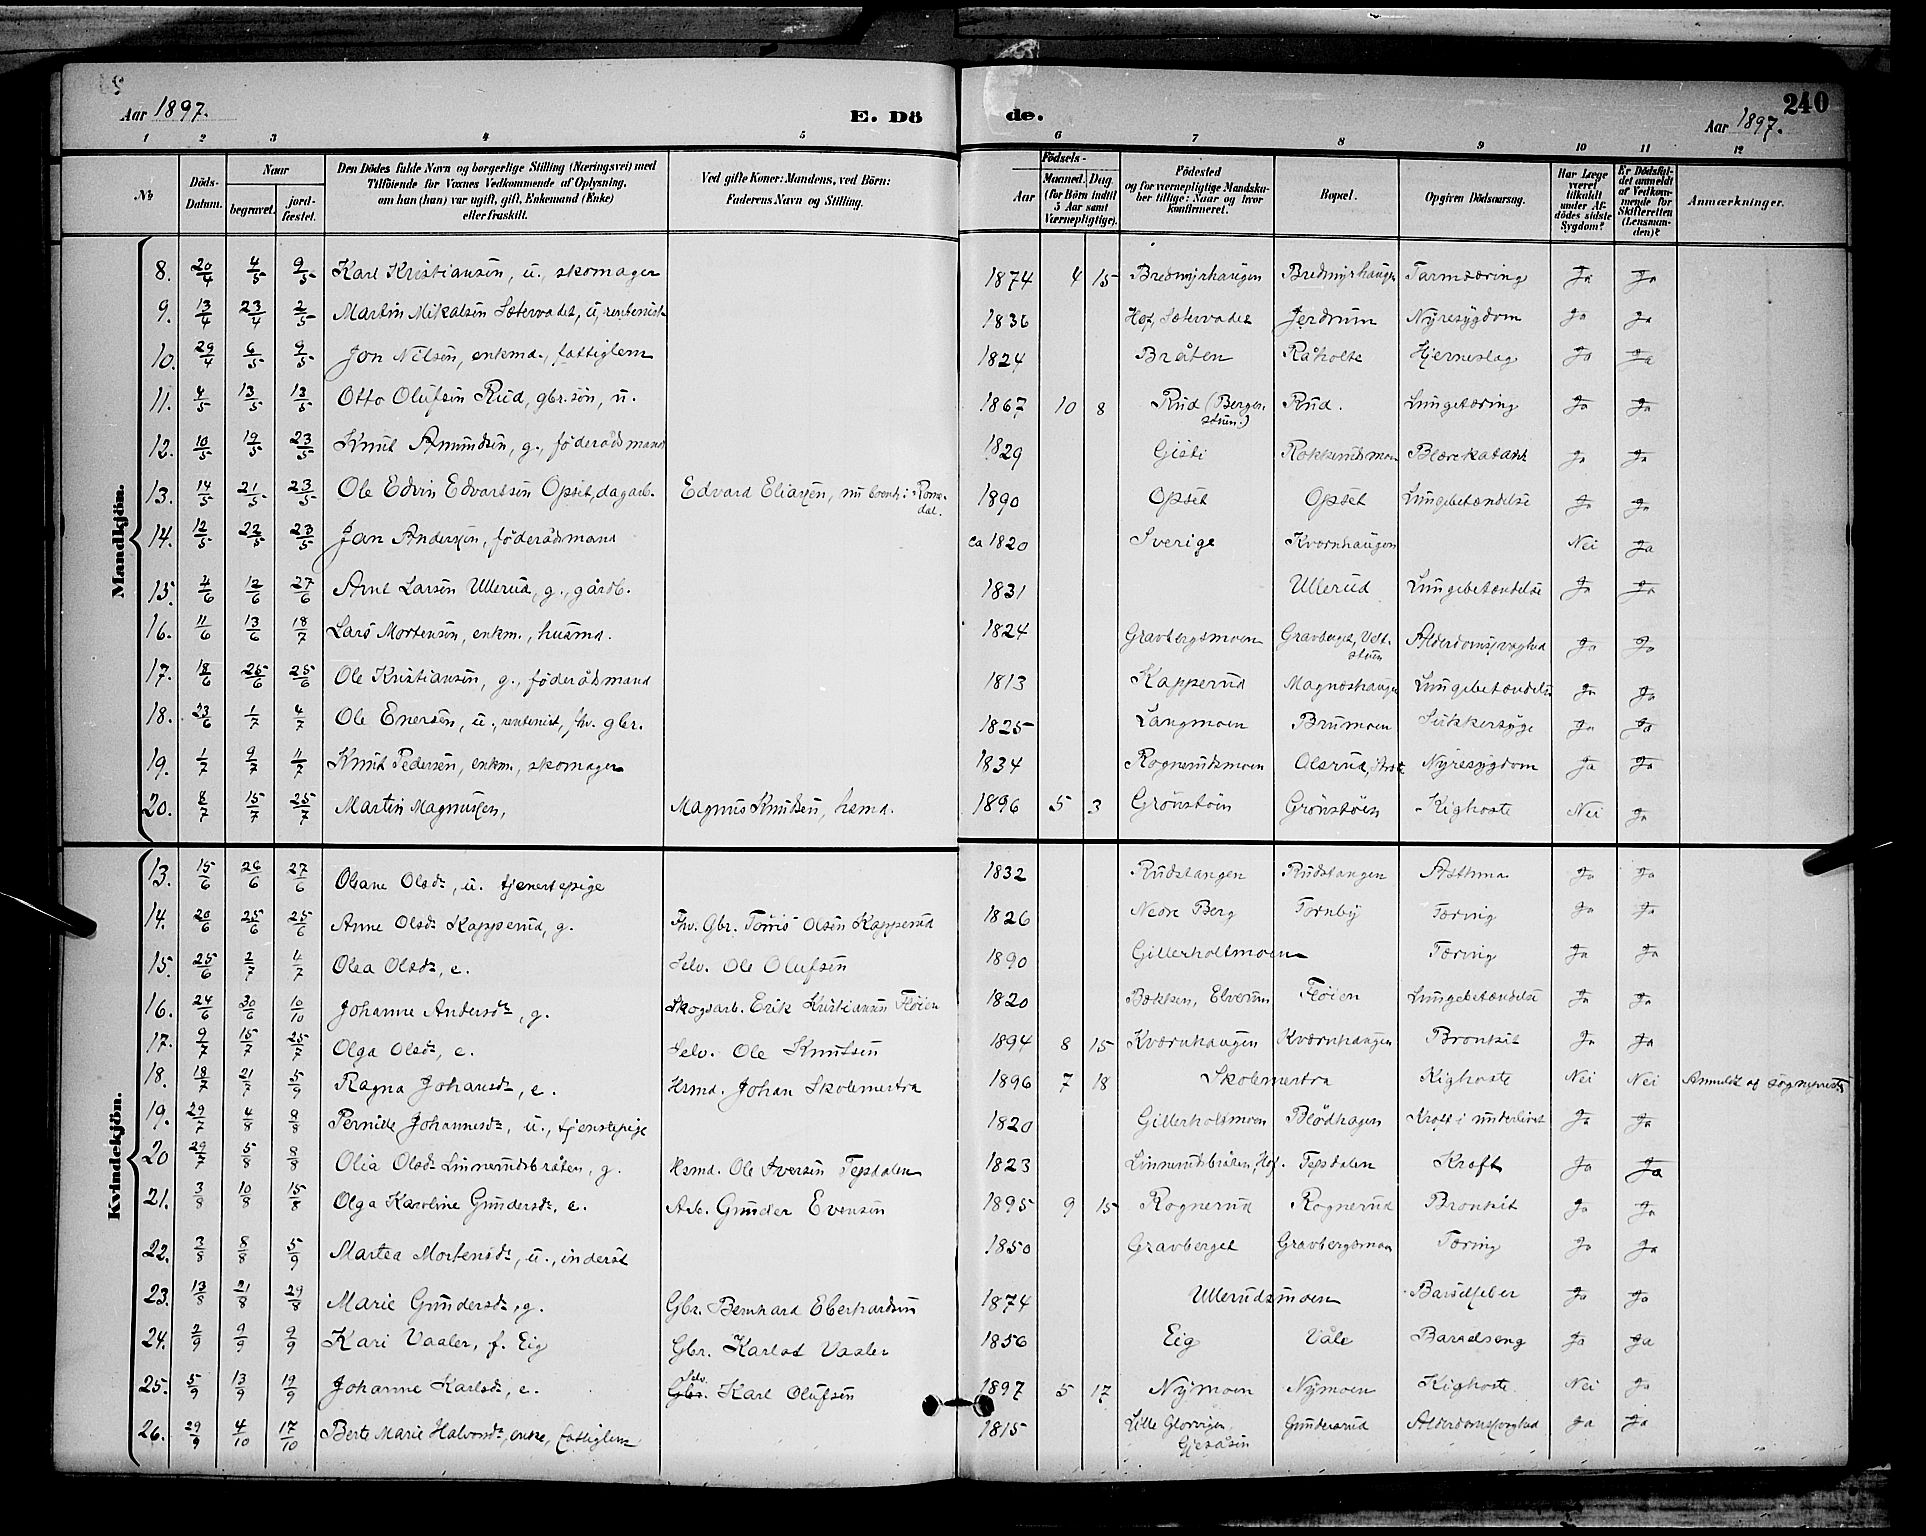 Aar 1897.
E. Dö
de.
240
Aar 1897.
1 2 3 4 5 6 7 8 9 10 11 12
No
Döds-Datum.
Naar
begravet.
jord-fæstet.
Den Dödes fulde Navn og borgerlige Stilling (Næringsvei) med
Tilföiende for Voxnes Vedkommende af Oplysning,
om han (hun) var ugift, gift, Enkemand (Enke)
eller fraskilt.
Ved gifte Koner: Mandens, ved Börn:
Faderens Navn og Stilling.
Födsels-
Aar
Maaned. Dag
(for Börn indtil
5 Aar samt
Værnepligtige).
Födested
og for værnepligtige Mandska-
ber tillige: Naar og hvor
konfirmeret.
Bopæl.
Opgiven Dödsaarsag.
Har Læge
været
tilkaldt
under Af-
dödes sidste
Sygdom?
Er Dödsfal-
det anmeldt
af Vedkom-
mende for
Skifteretten
(Lensman-
den)?
Anmærkninger.
Mandkjön.
8. 20/4 4/5 9/5 Karl Kristiansen, u., skomager 1874 4 15 Bredmyrhaugen Bredmyrhaugen Tarmtæring Ja Ja
9. 13/4 23/4 2/5 Martin Mikalsen Sætervadet, u, rentenist 1836 Hof, Sætervadet Jerdrum Nyresygdom Ja Ja
10. 29/4 6/5 9/5 Jon Nilsen, enkmd., fattiglem 1824 Bråten Råholte Hjerneslag Ja Ja
11. 4/5 13/5 13/5 Otto Olufsen Rud, gbr.søn, u. 1867 10 8 Rud (Bergen- Rud. Lungetæring Ja Ja
stuen.)
12. 10/5 19/5 23/5 Knut Amundsen, g., föderådsmand 1829 Gisti Blærekatarh Ja Ja
13. 14/5 21/5 23/5 Ole Edvin Edvartsen Opset, dagarb. Edvard Eliassen, nu boende i Roms- 1890 Opset Opset Lungebetændelse Ja Ja
dal.
14. 12/5 22/5 23/5 Jan Andersen, föderådsmand ca 1820 Sverige Kværnhaugen Nei Ja
15. 4/6 12/6 27/6 Arne Larsen Ullerud, g., gårdb. 1831 Ullerud Lungebetændelse Ja Ja
16. 11/6 13/6 18/7 Lars Mortensen, enkm., husmd. 1824 Gravbergsmoen Gravberget, Vest- Alderdomssvaghed Ja Ja
stuen
17. 18/6 25/6 25/6 Ole Kristiansen, g., föderådsmand 1813 Kapperud Magneshaugen Lungebetændelse Ja Ja
18. 23/6 1/7 4/7 Ole Enersen, u., rentenist, fhv. gbr. 1825 Langmoen Brumoen Sukkersyge Ja Ja
19. 1/7 9/7 11/7 Knut Pedersen, enkm., skomager 1834 Rognerudsmoen Olsrud, Nyresygdom Ja Ja
20. 8/7 15/7 25/7 Martin Magnussen, Magnus Knutsen, hsmd. 1896 5 3 Grönstöen Grönstöen Kighoste Nei Ja
Kvindekjön.
13. 15/6 26/6 27/6 Oleane Olsdr, u. tjenestepige 1832 Rudstangen Rudstangen Asthma Ja Ja
14. 20/6 25/6 25/6 Anne Olsdr Kapperud, g. Fhv. Gbr. Törris Olsen Kapperud 1826 Nedre Berg Tornby Tæring Ja Ja
15. 25/6 2/7 4/7 Olea Olsdr, e. Selv. Ole Olufsen 1890 Gillerholtmoen Tæring Ja Ja
16. 24/6 30/6 10/10 Johanne Andersdr, g. Skogsarb. Erik Kristiansen Flöien 1820 Bækken, Elverum Flöien Lungebetændelse Ja Ja
17. 9/7 15/7 25/7 Olga Olsdr, e. Selv. Ole Knutsen 1894 8 15 Kværnhaugen Kværnhaugen Bronkit Ja Ja
18. 18/7 21/7 5/9 Ragna Johansdr, e. Hsmd. Johan Skolemestra 1896 7 18 Skolemestra Kighoste Nei Nei Anmeldt af sogneprest
19. 29/7 4/8 8/8 Pernille Johannesdr, u., tjenstepige 1820 Gillerholtmoen Blödhagen Kræft i underlivet Ja Ja
20 29/7 5/8 8/8 Olia Olsdr Linnerudsbråten, g. Hsmd. Ole Iversen Tepsdalen 1823 Linnerudsbråten, Hof. Tepsdalen Kræft Ja Ja
21. 3/8 10/8 15/8 Olga Karoline Gundersdr, e. Arb. Gunder Evensen 1895 9 15 Rognerud Rognerud Bronkit Ja Ja
22. 3/8 8/8 5/9 Martea Mortensdr, u., inderst 1850 Gravberget Gravbergsmoen Tæring Ja Ja
23. 13/8 21/8 29/8 Marie Gundersdr, g. Gbr. Bernhard Eberhardsen 1874 Ullerudsmoen Barselfeber Ja Ja
24. 2/9 9/9 9/9 Kari Vaaler, f. Eig Gbr. Karlot Vaaler 1856 Eig Våle Barselseng Ja Ja
Selv.
25. 5/9 13/9 19/9 Johanne Karlsdr, e. Gbr. Karl Olufsen 1897 5 17 Nymoen Nymoen Kighoste Nei Ja
26. 29/9 4/10 17/10 Berte Marie Halvorsdr, enke, fattiglem 1815 Lille Glorvigen Gundersrud Alderdomssvaghed Ja Ja
Gjesåsen